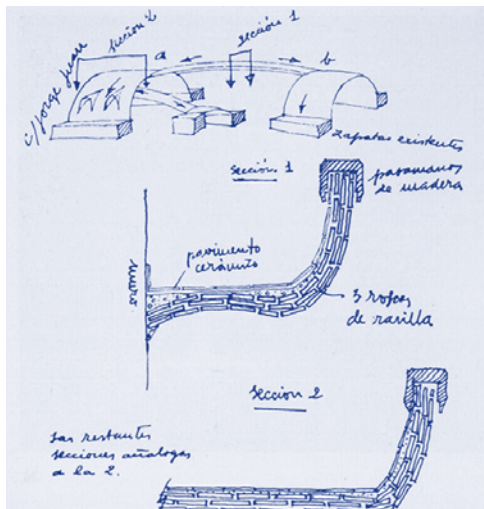 sección 2
sección 1
a
b
c/Jorge Juan
zapatas existentes
sección 1
pasamanos
de madera
muro
pavimento
cerámico
3 roscas
de rasilla
sección 2
Las restantes
secciones análogas
a la 2.